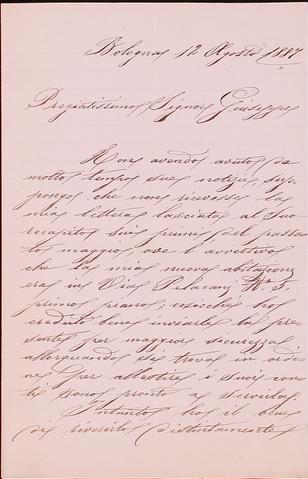 Bologna 12 Agosto 1887
Pregiatissimo Signor Giuseppe
Non avendo avuto da
molto tempo sue notizie, sup-
pongo che non ricevesse la
mia lettera lasciata al suo
recapito sui primi del passa
to maggio, ove l'avvertivo
che la mia nuova abitazione
era in Via Pelacani N.o 5.
primo piano, cosicchè ho
creduto bene inviarle la pre
sente per maggior sicurezza
allorquando si trova in ordi
ne per allestire i suoi con
ti sono pronto a servirla.
Intanto ho il bene
di riverirla distintamente